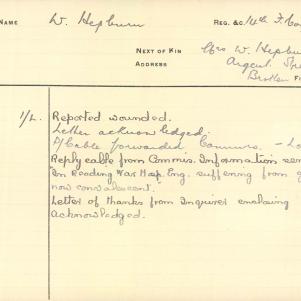 NAME W. Hepburn REG. &C. 14th F. Co
NEXT OF KIN Mrs W. Hepbu
ADDRESS Argent Stre
Broken
1/L. Reported wounded.
Letter acknowledged.
P/Cable forwarded Commrs. - Lo
Reply cable from Commis. Information see
In Reading War Hosp. Eng. suffering from g
now convalescent.
Letter of thanks from Inquirer enclosing
Acknowledged.